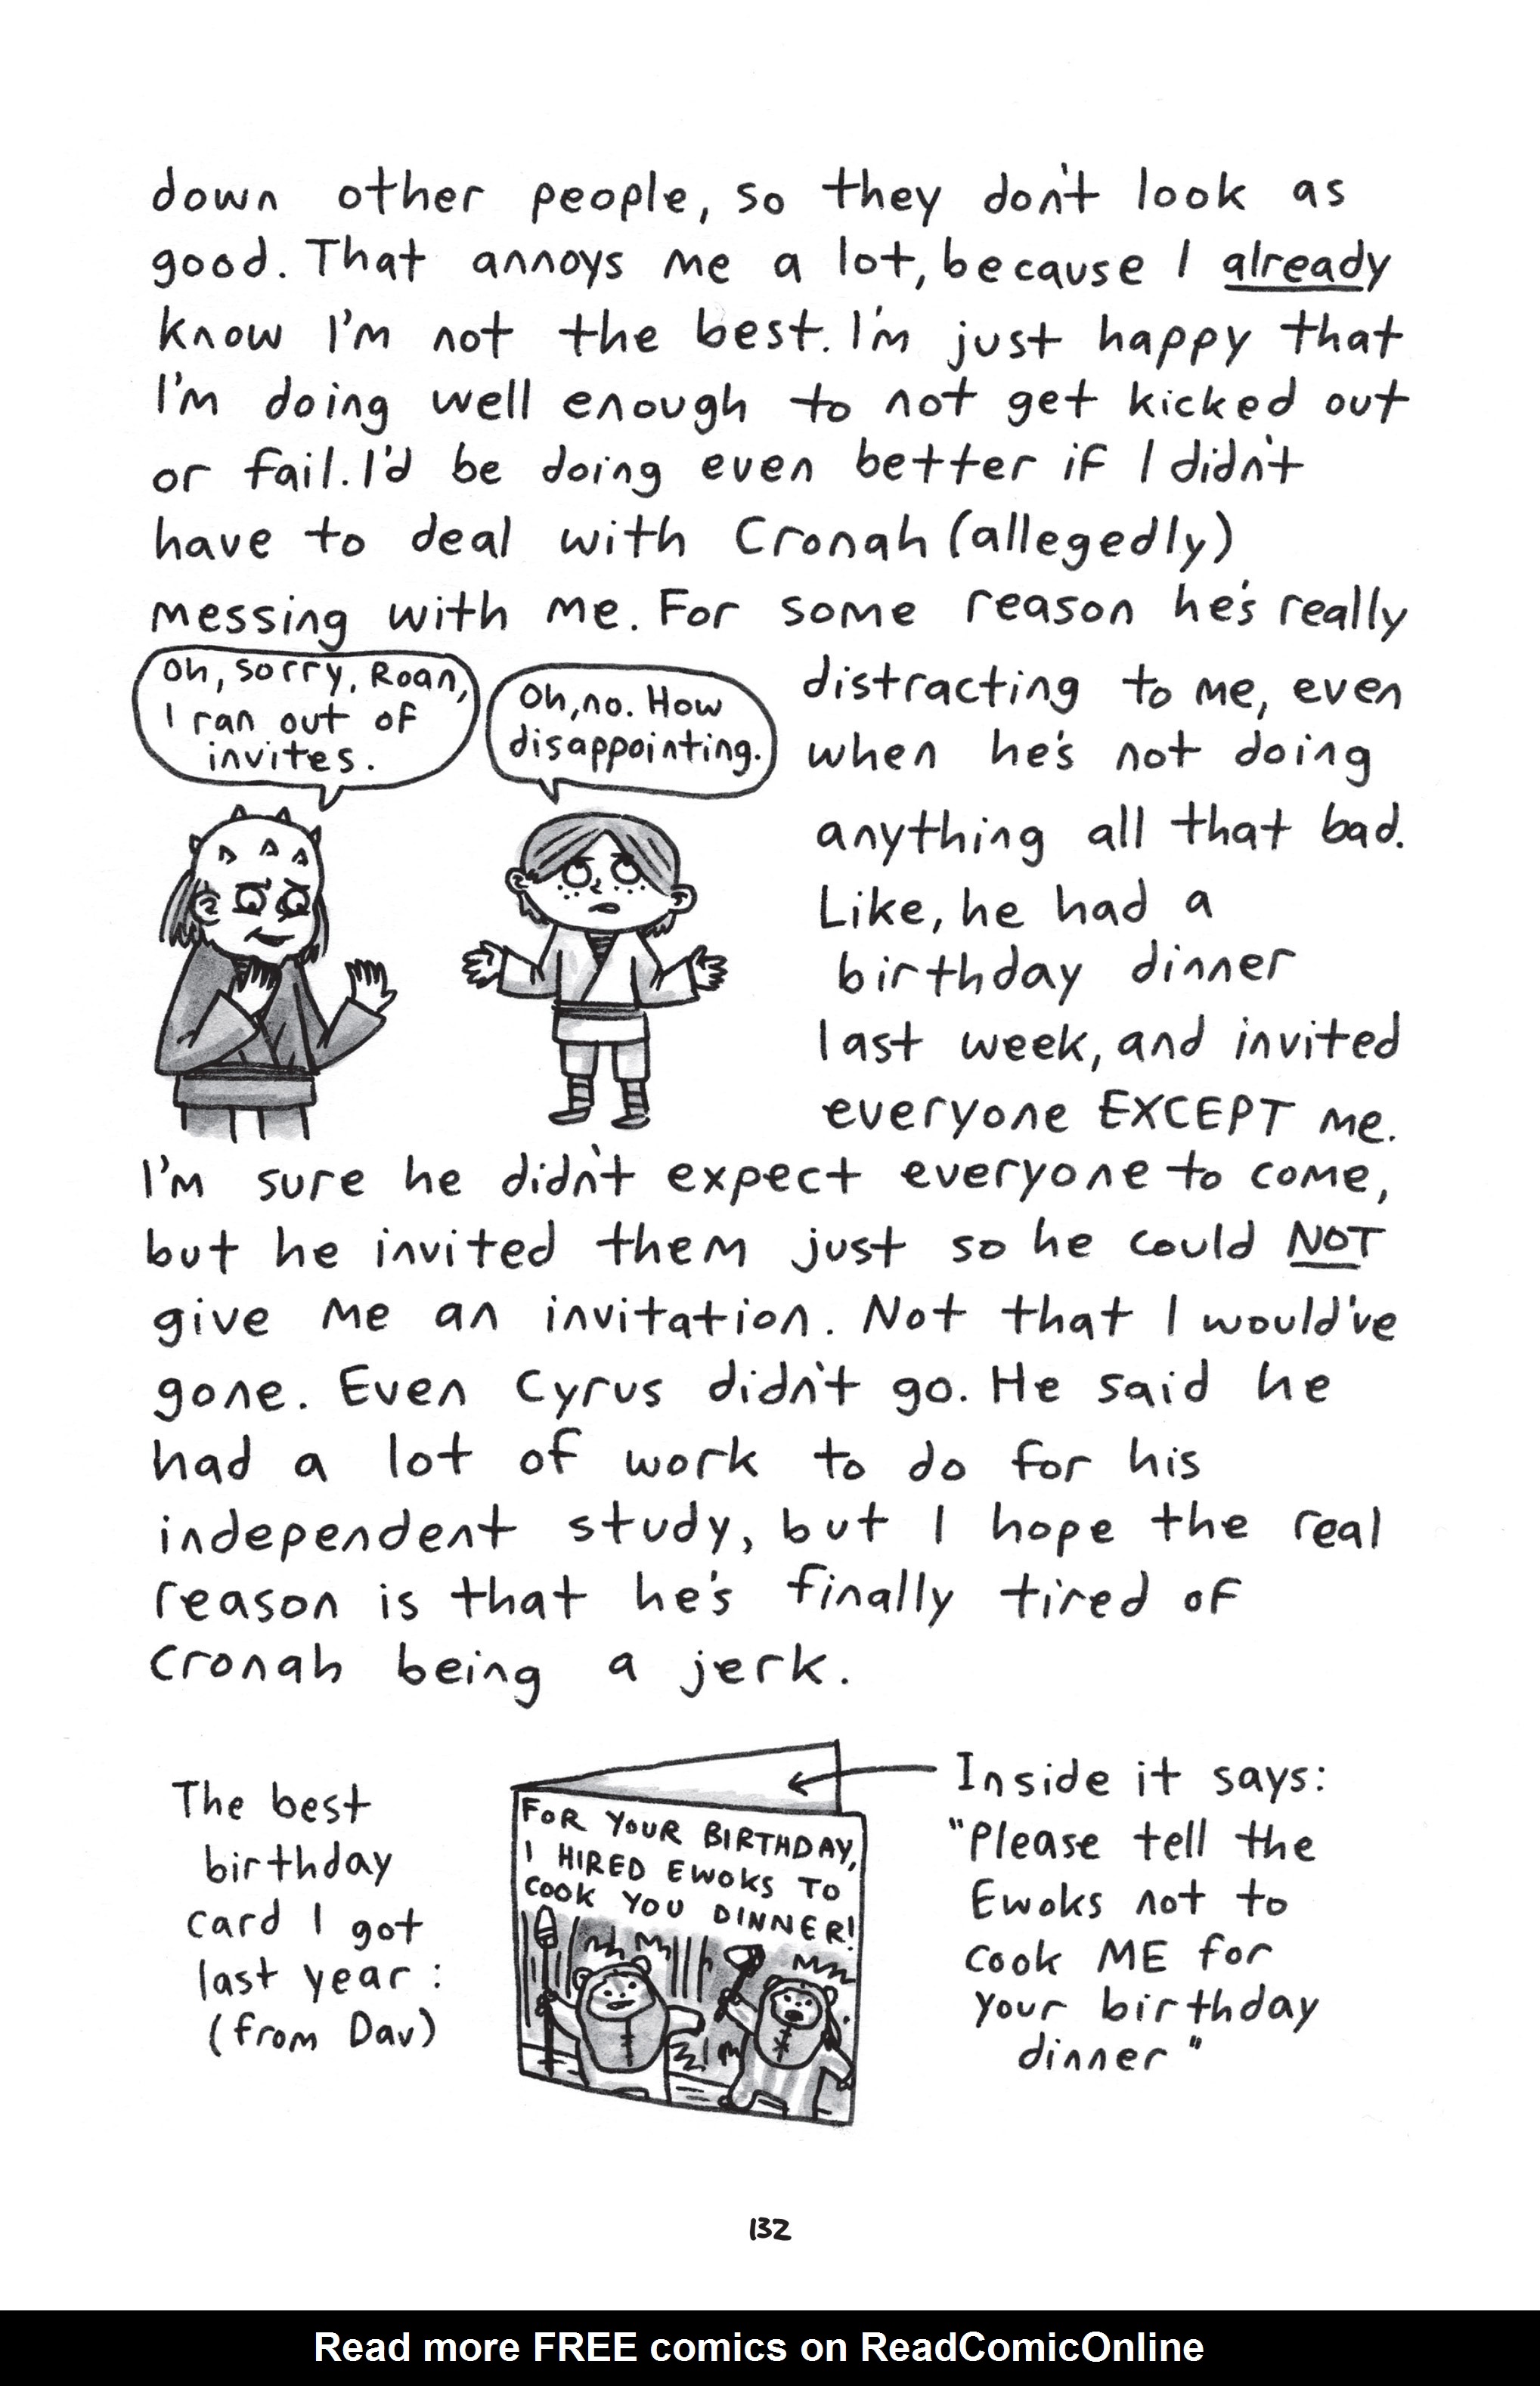 down other people, so they don't look as
good. That annoys me a lot, because I already
know I'm not the best. I'm just happy that
I'm doing well enough to not get kicked out
or fail. I'd be doing even better if I didn't
have to deal with Cronah (allegedly)
messing with me. For some reason he's really
Oh, sorry, Roan,
I ran out of
invites.
Oh, no. How
disappointing.
distracting to me, even
when he's not doing
anything all that bad.
Like, he had a
birthday dinner
last week, and invited
everyone EXCEPT me.
I'm sure he didn't expect everyone to come,
but he invited them just so he could NOT
give me an invitation. Not that I would've
gone. Even Cyrus didn't go. He said he
had a lot of work to do for his
independent study, but I hope the real
reason is that he's finally tired of
Cronah being a jerk.
The best
birthday
card I got
last year:
(from Dav)
FOR YOUR BIRTHDAY,
I HIRED EWOKS TO
COOK YOU DINNER!
Inside it says:
"Please tell the
Ewoks not to
cook ME for
your birthday
dinner"
132
Read more FREE comics on ReadComicOnline